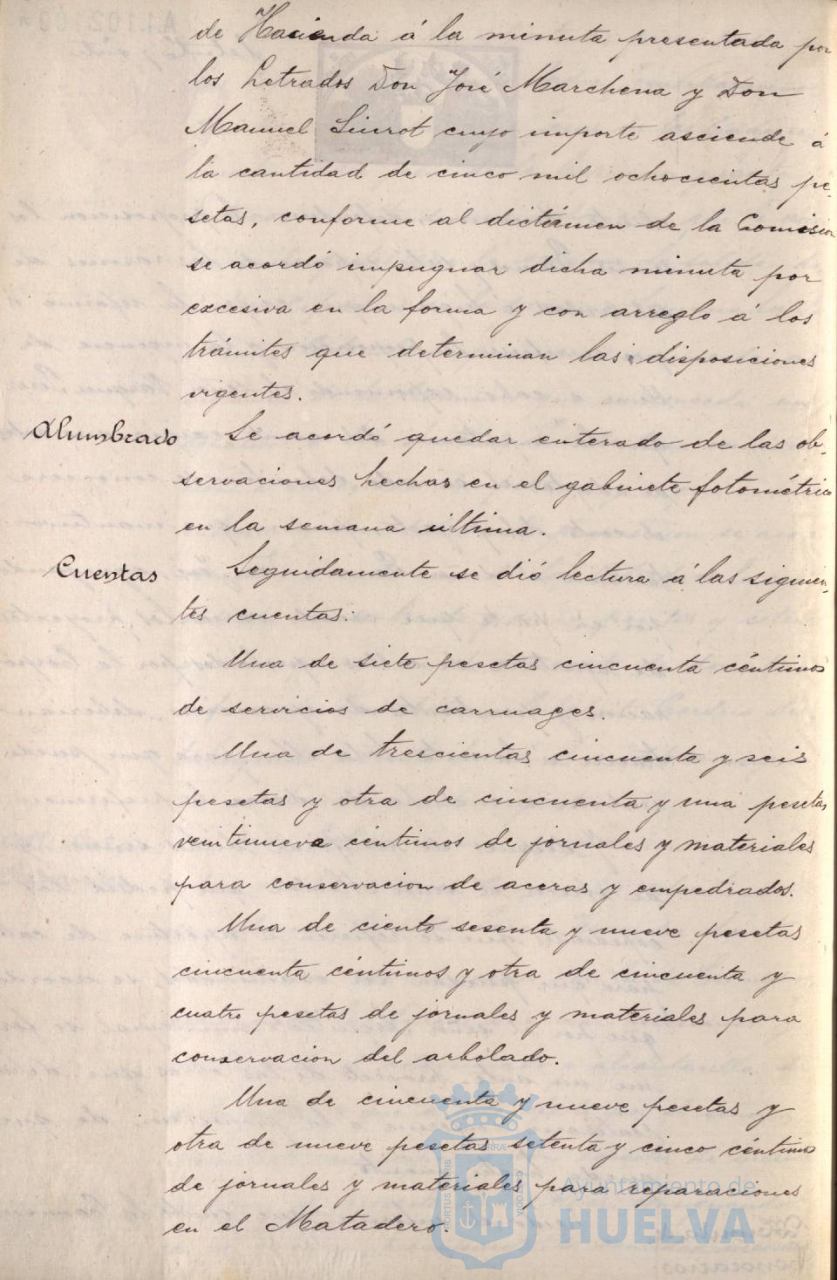 de Hacienda á la minuta presentada por
los Letrados Don José Marchena y Don
Manuel Siurot cuyo importe asciende á
la cantidad de cinco mil ochocientas pe-
setas, conforme al dictámen de la Comision
se acordó impugnar dicha minuta por
excesiva en la forma y con arreglo á los
trámites que determinan las disposiciones
vigentes.
Alumbrado Se acordó quedar enterado de las ob-
servaciones hechas en el gabinete fotométrico
en la semana última.
Cuentas Seguidamente se dió lectura á las siguien-
tes cuentas:
Una de siete pesetas cincuenta céntimos
de servicios de carruages.
Una de trescientas cincuenta y seis
pesetas y otra de cincuenta y una pesetas
veintinueve céntimos de jornales y materiales
para conservacion de aceras y empedrados.
Una de ciento sesenta y nueve pesetas
cincuenta céntimos y otra de cincuenta y
cuatro pesetas de jornales y materiales para
conservacion del arbolado.
Una de cincuenta y nueve pesetas y
otra de nueve pesetas setenta y cinco céntimos
de jornales y materiales para reparaciones
en el Matadero.
Ayuntamiento de
HUELVA